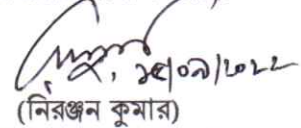 ১৫/০৯/২০২২
(নিরঞ্জন কুমার)